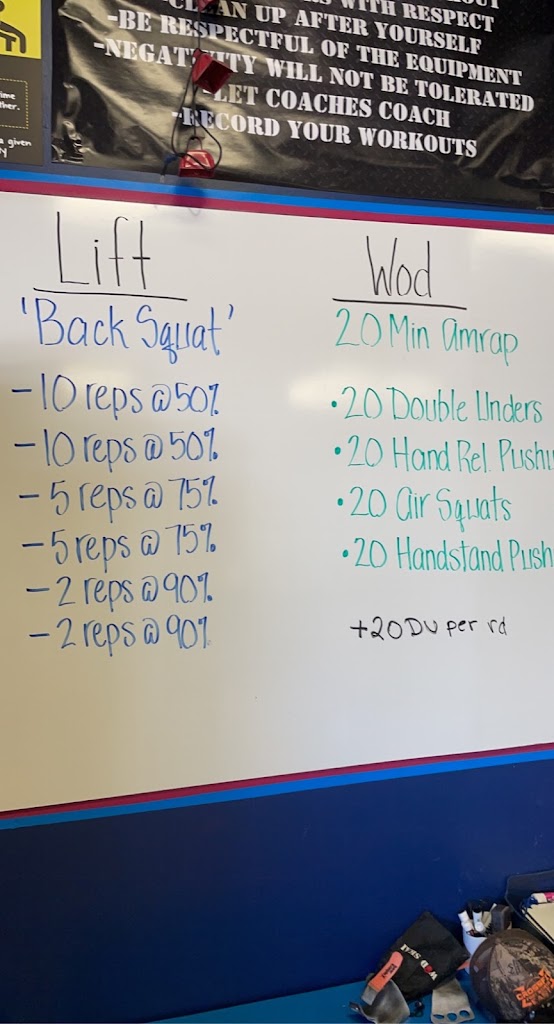 WITH RESPECT
UP AFTER YOURSELF
-BE RESPECTFUL OF THE EQUIPMENT
-NEGATIVITY WILL NOT BE TOLERATED
-LET COACHES COACH
-RECORD YOUR WORKOUTS
Lift
'Back Squat'
-10 reps @ 50%
-10 reps @ 50%
-5 reps @ 75%
-5 reps @ 75%
-2 reps @ 90%
-2 reps @ 90%
Wod
20 Min Amrap
•20 Double Unders
•20 Hand Rel. Pushu
•20 Air Squats
•20 Handstand Push
+20 DU per rd